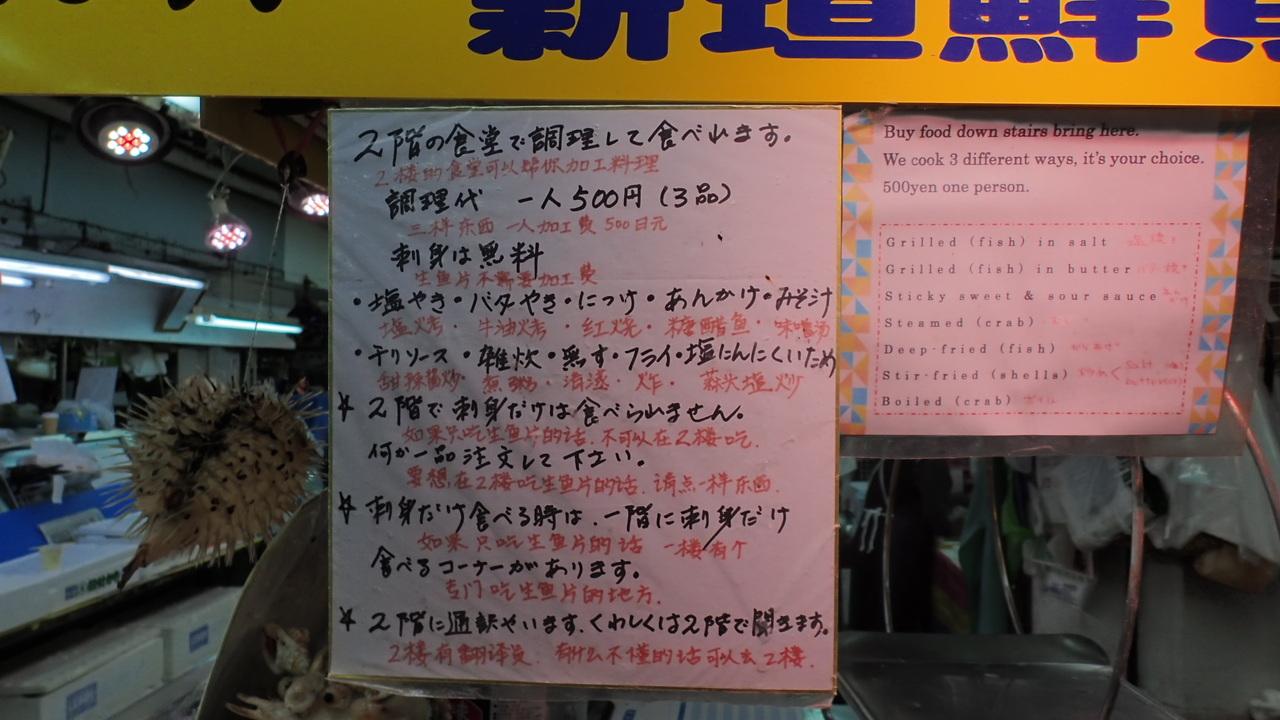 新垣鮮魚
2階の食堂で調理して食べれます。
2楼的食堂可以帮你加工料理
調理代 一人500円(3品)
三样东西 一人加工費 500日元
刺身は無料
生鱼片不需要加工费
・塩やき・バタやき・につけ・あんかけ・みそ汁
塩烤・牛油烤・红烧・糖醋鱼・味噌汤
・チリソース・雑炊・蒸す・フライ・塩にんにくいため
甜辣酱炒・煮粥・清蒸・炸・蒜头塩炒
☆2階で刺身だけは食べられません。
如果只吃生鱼片的话.不可以在2楼吃.
何か一品注文して下さい。
要想在2楼吃生鱼片的话.请点一样东西.
☆刺身だけ食べる時は.一階に刺身だけ
如果只吃生鱼片的话 一楼有个
食べるコーナーがあります。
专门吃生鱼片的地方.
☆2階に通訳やいます.くわしくは2階で聞きます。
2楼有翻译员.有什么不懂的话可以去2楼.
Buy food down stairs bring here.
We cook 3 different ways, it's your choice.
500yen one person.
Grilled (fish) in salt 塩焼
Grilled (fish) in butter バター焼
Sticky sweet & sour sauce
Steamed (crab)
Deep-fried (fish) からあげ
Stir-fried (shells)
Boiled (crab) ボイル